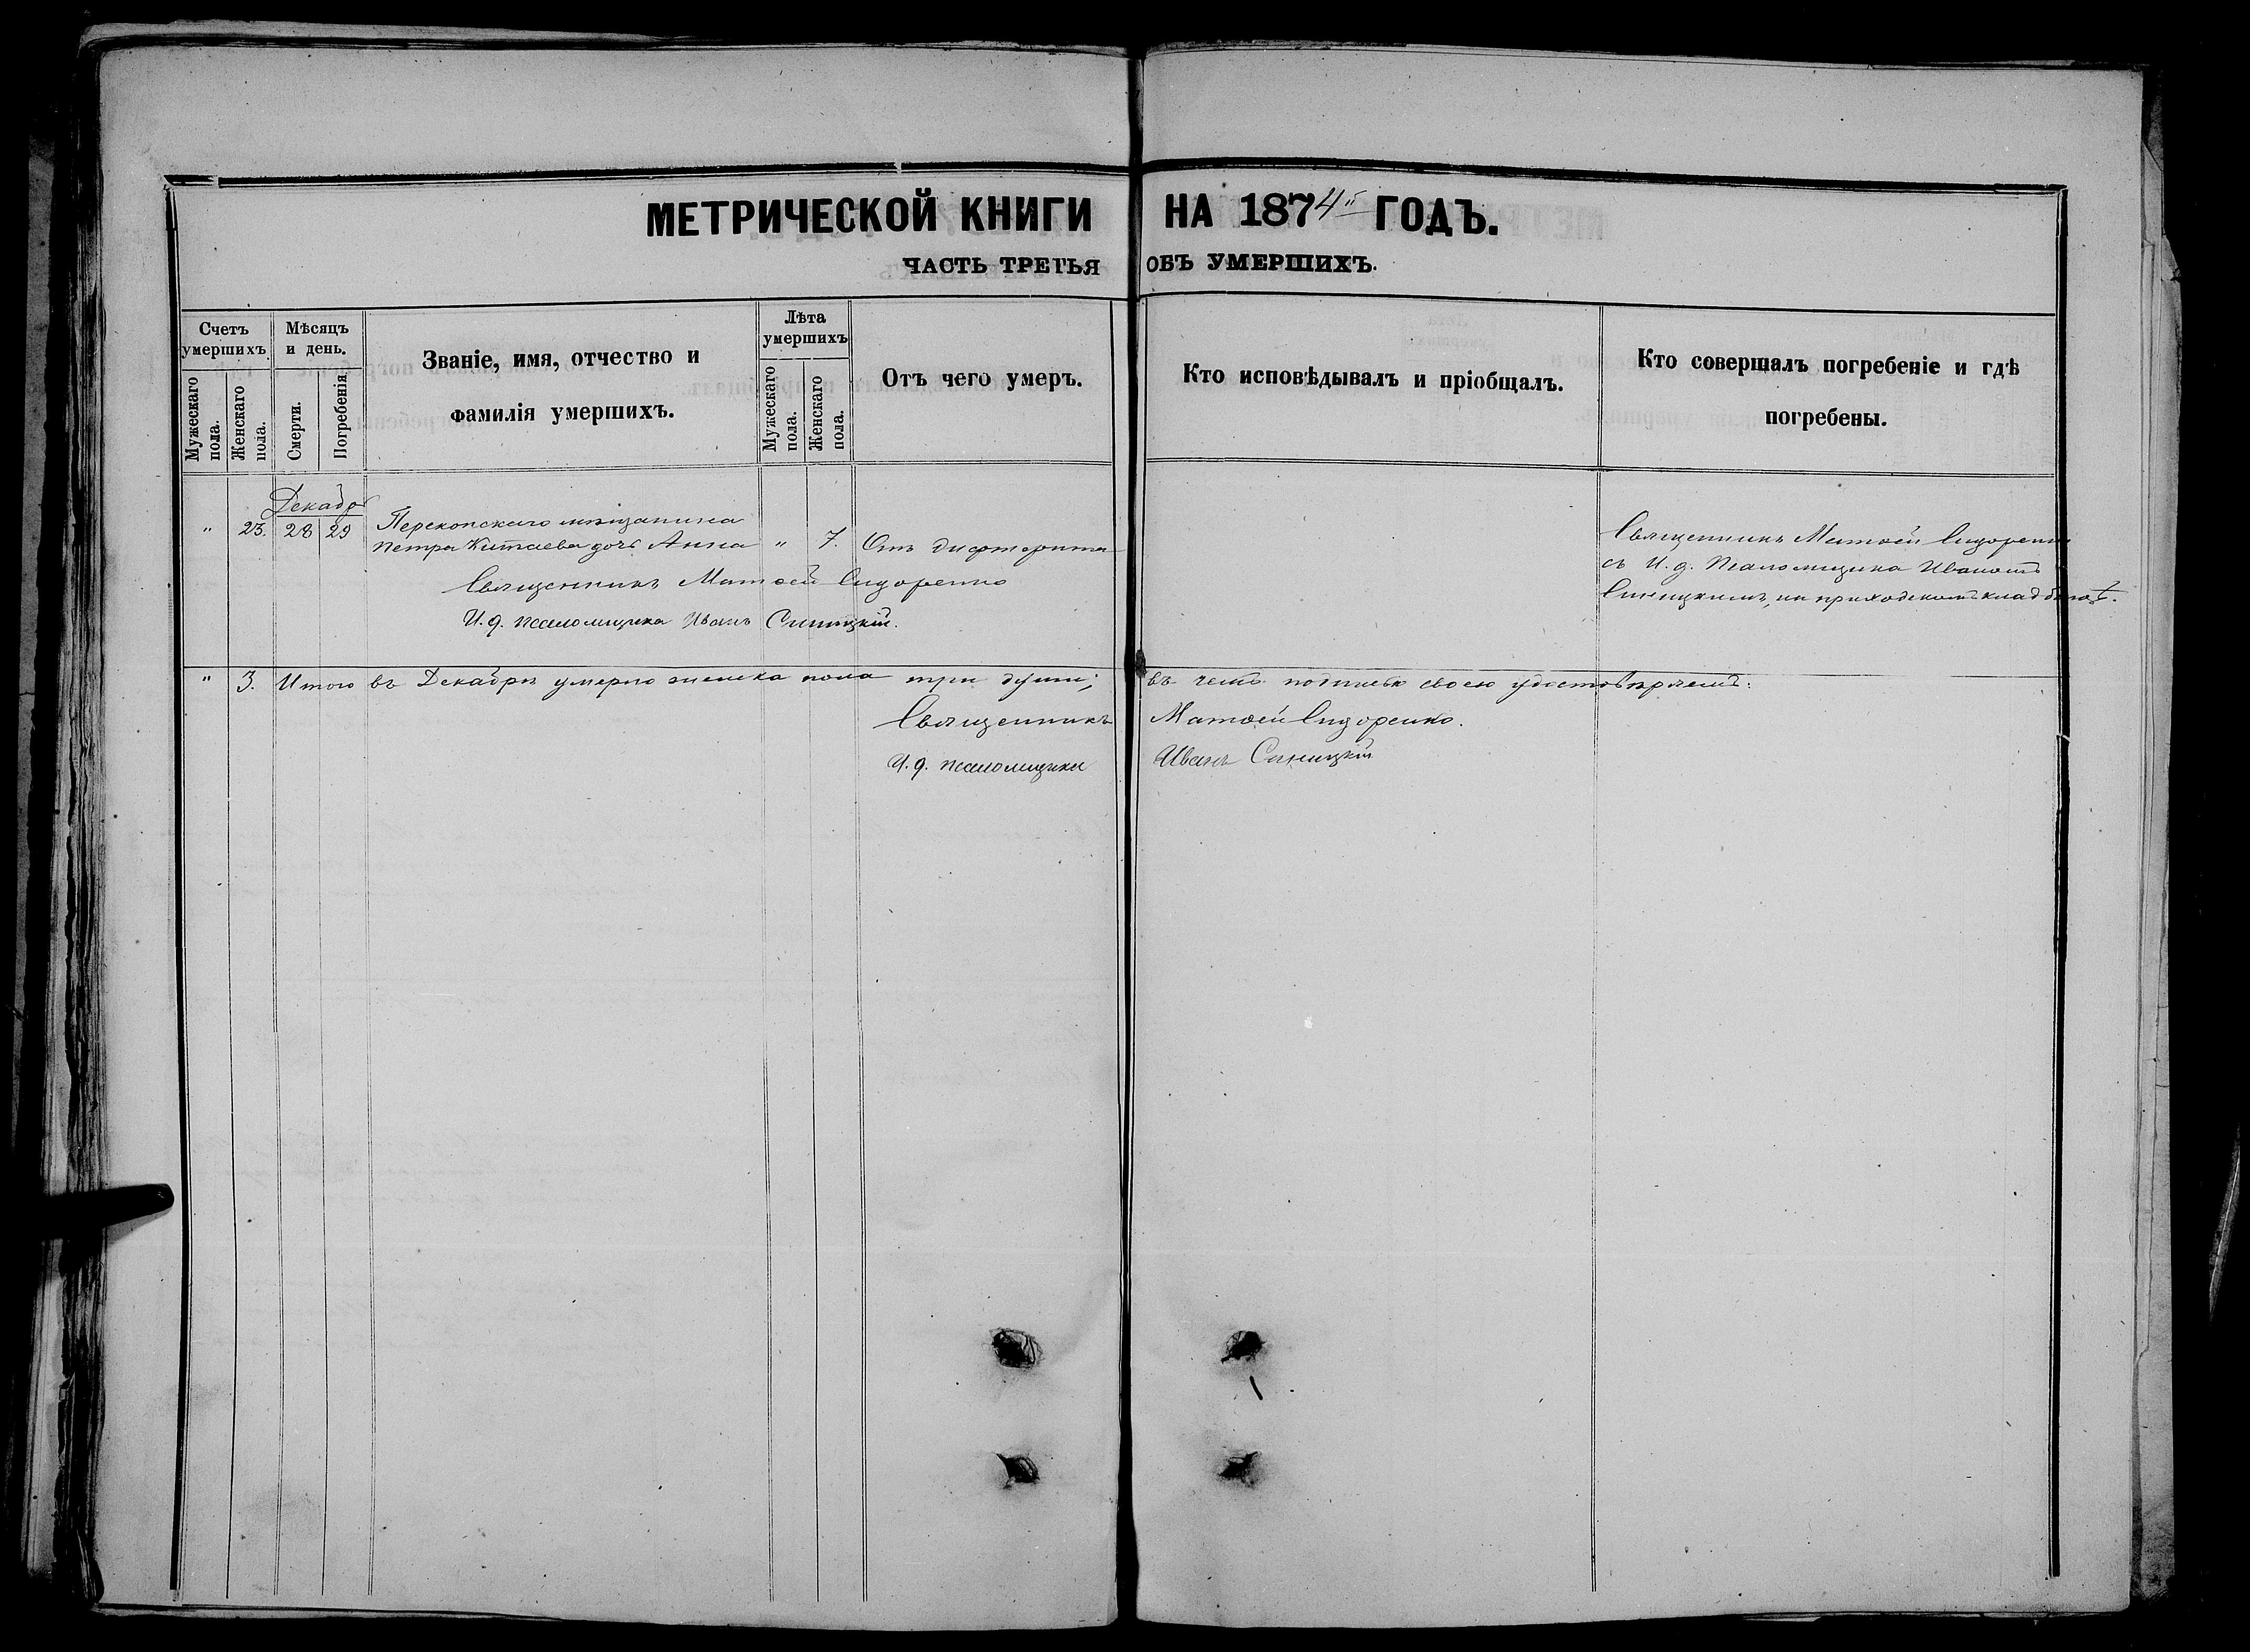 МЕТРИЧЕСКОЙ КНИГИ НА 1874й ГОДЪ.
ЧАСТЬ ТРЕТЬЯ ОБЪ УМЕРШИХЪ.
Счетъ умершихъ.
Мужескаго пола.
Женскаго пола.
Мѣсяцъ и день.
Смерти.
Погребенія.
Званіе, имя, отчество и
фамилія умершихъ.
Лѣта умершихъ
Мужескаго пола.
Женскаго пола.
Отъ чего умеръ.
Кто исповѣдывалъ и пріобщалъ.
Кто совершалъ погребеніе и гдѣ
погребены.
Декабр
" 23. 28 29
Перекопскаго мѣщанина
Петра Китаева дочь Анна " 7. Отъ дифтерита
Священникъ Матѳей Сидоренко
И. д. псаломщика Иванъ Синицкій.
Священникъ Матѳей Сидоренко
съ И. д. Псаломщика Иваномъ
Синицкимъ, на приходскомъ кладбищѣ.
" 3. Итого въ Декабрѣ умерло женска пола три души; въ чемъ подписью своею удостовѣряемъ:
Священникъ Матѳей Сидоренко.
И. д. псаломщика Иванъ Синицкій